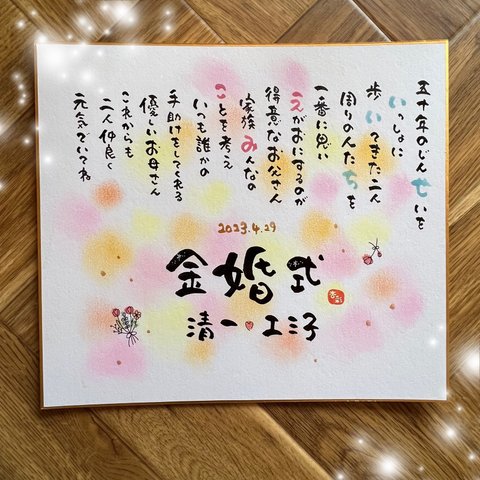 五十年のじんせいを
いっしょに
歩いてきた二人
周りの人たちを
一番に思い
えがおにするのが
得意なお父さん
家族みんなの
ことを考え
いつも誰かの
手助けをしてくれる
優しいお母さん
これからも
二人仲良く
元気でいてね
2023.4.29
金婚式
清一♥エミ子